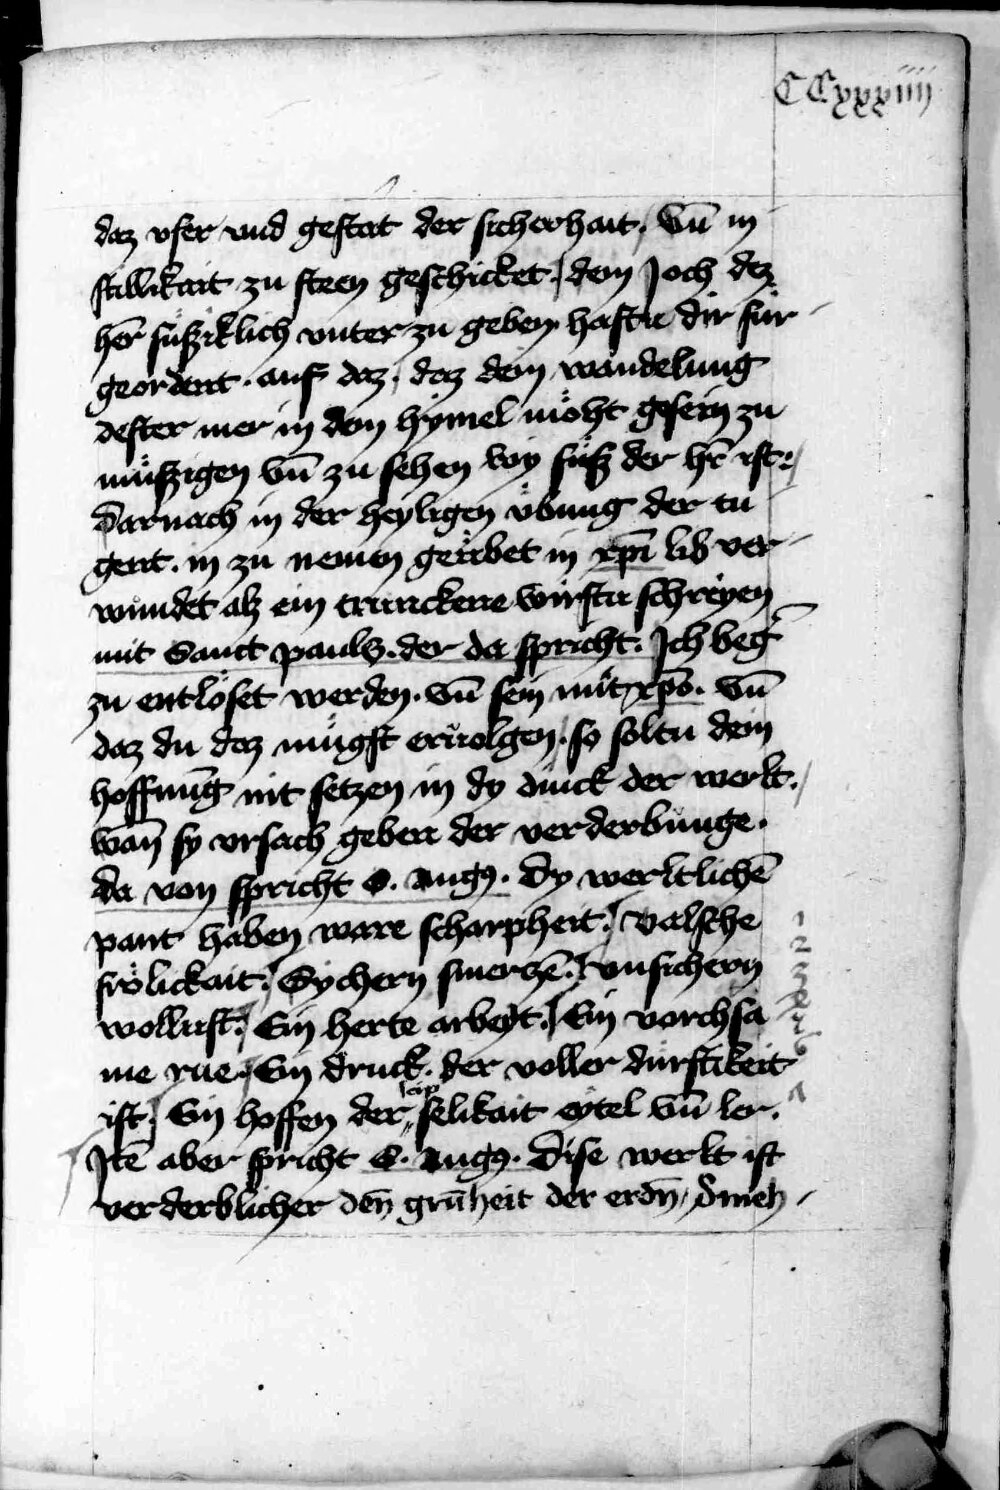 CCxxxiiii
daz vfer vnd gestat der sicherhait. Vn̄ in
stillikait zu steen geschicket. dem Joch dez
hēr süsziklich vnter zu geben. hastu dir für
geordent. auf daz, daz dein wandelung
dester mer in dem hymel möht gesein zu
müszigen vn̄ zu sehen wy süsz der hr̄ ist.
Darnach in der heyligen übung der tu
gent. in zu nemen geübet in xp̄i lib ver
wundet alz ein trunckene wirstu schreyen
mit Sanct paulz. der da spricht. Ich beḡ
zu entlöset werden. vn̄ sein mit xp̄o. Vn̄
daz du daz mügst eruolgen. so soltu dein
hoffnūg nit setzen in dy dinck der werlt.
wan̄ sy vrsach geben der verderbunge.
da von spricht S. Augꝰ. Dy werltlichē
pant haben ware scharpheit. Valsche
frölickait. Sychern smerczē. vnsichern
wollust. Ein herte arbeyt. Ein vorchsa
me rue. Ein druck. der voller dürftikeit
ist. Ein hoffen der selikait eytel vn̄ ler.
Itē aber spricht S. Augꝰ. Dise werlt ist
verderblicher den̄ grūheit der erdn̄, Smeh
1
2
3
4
5
6